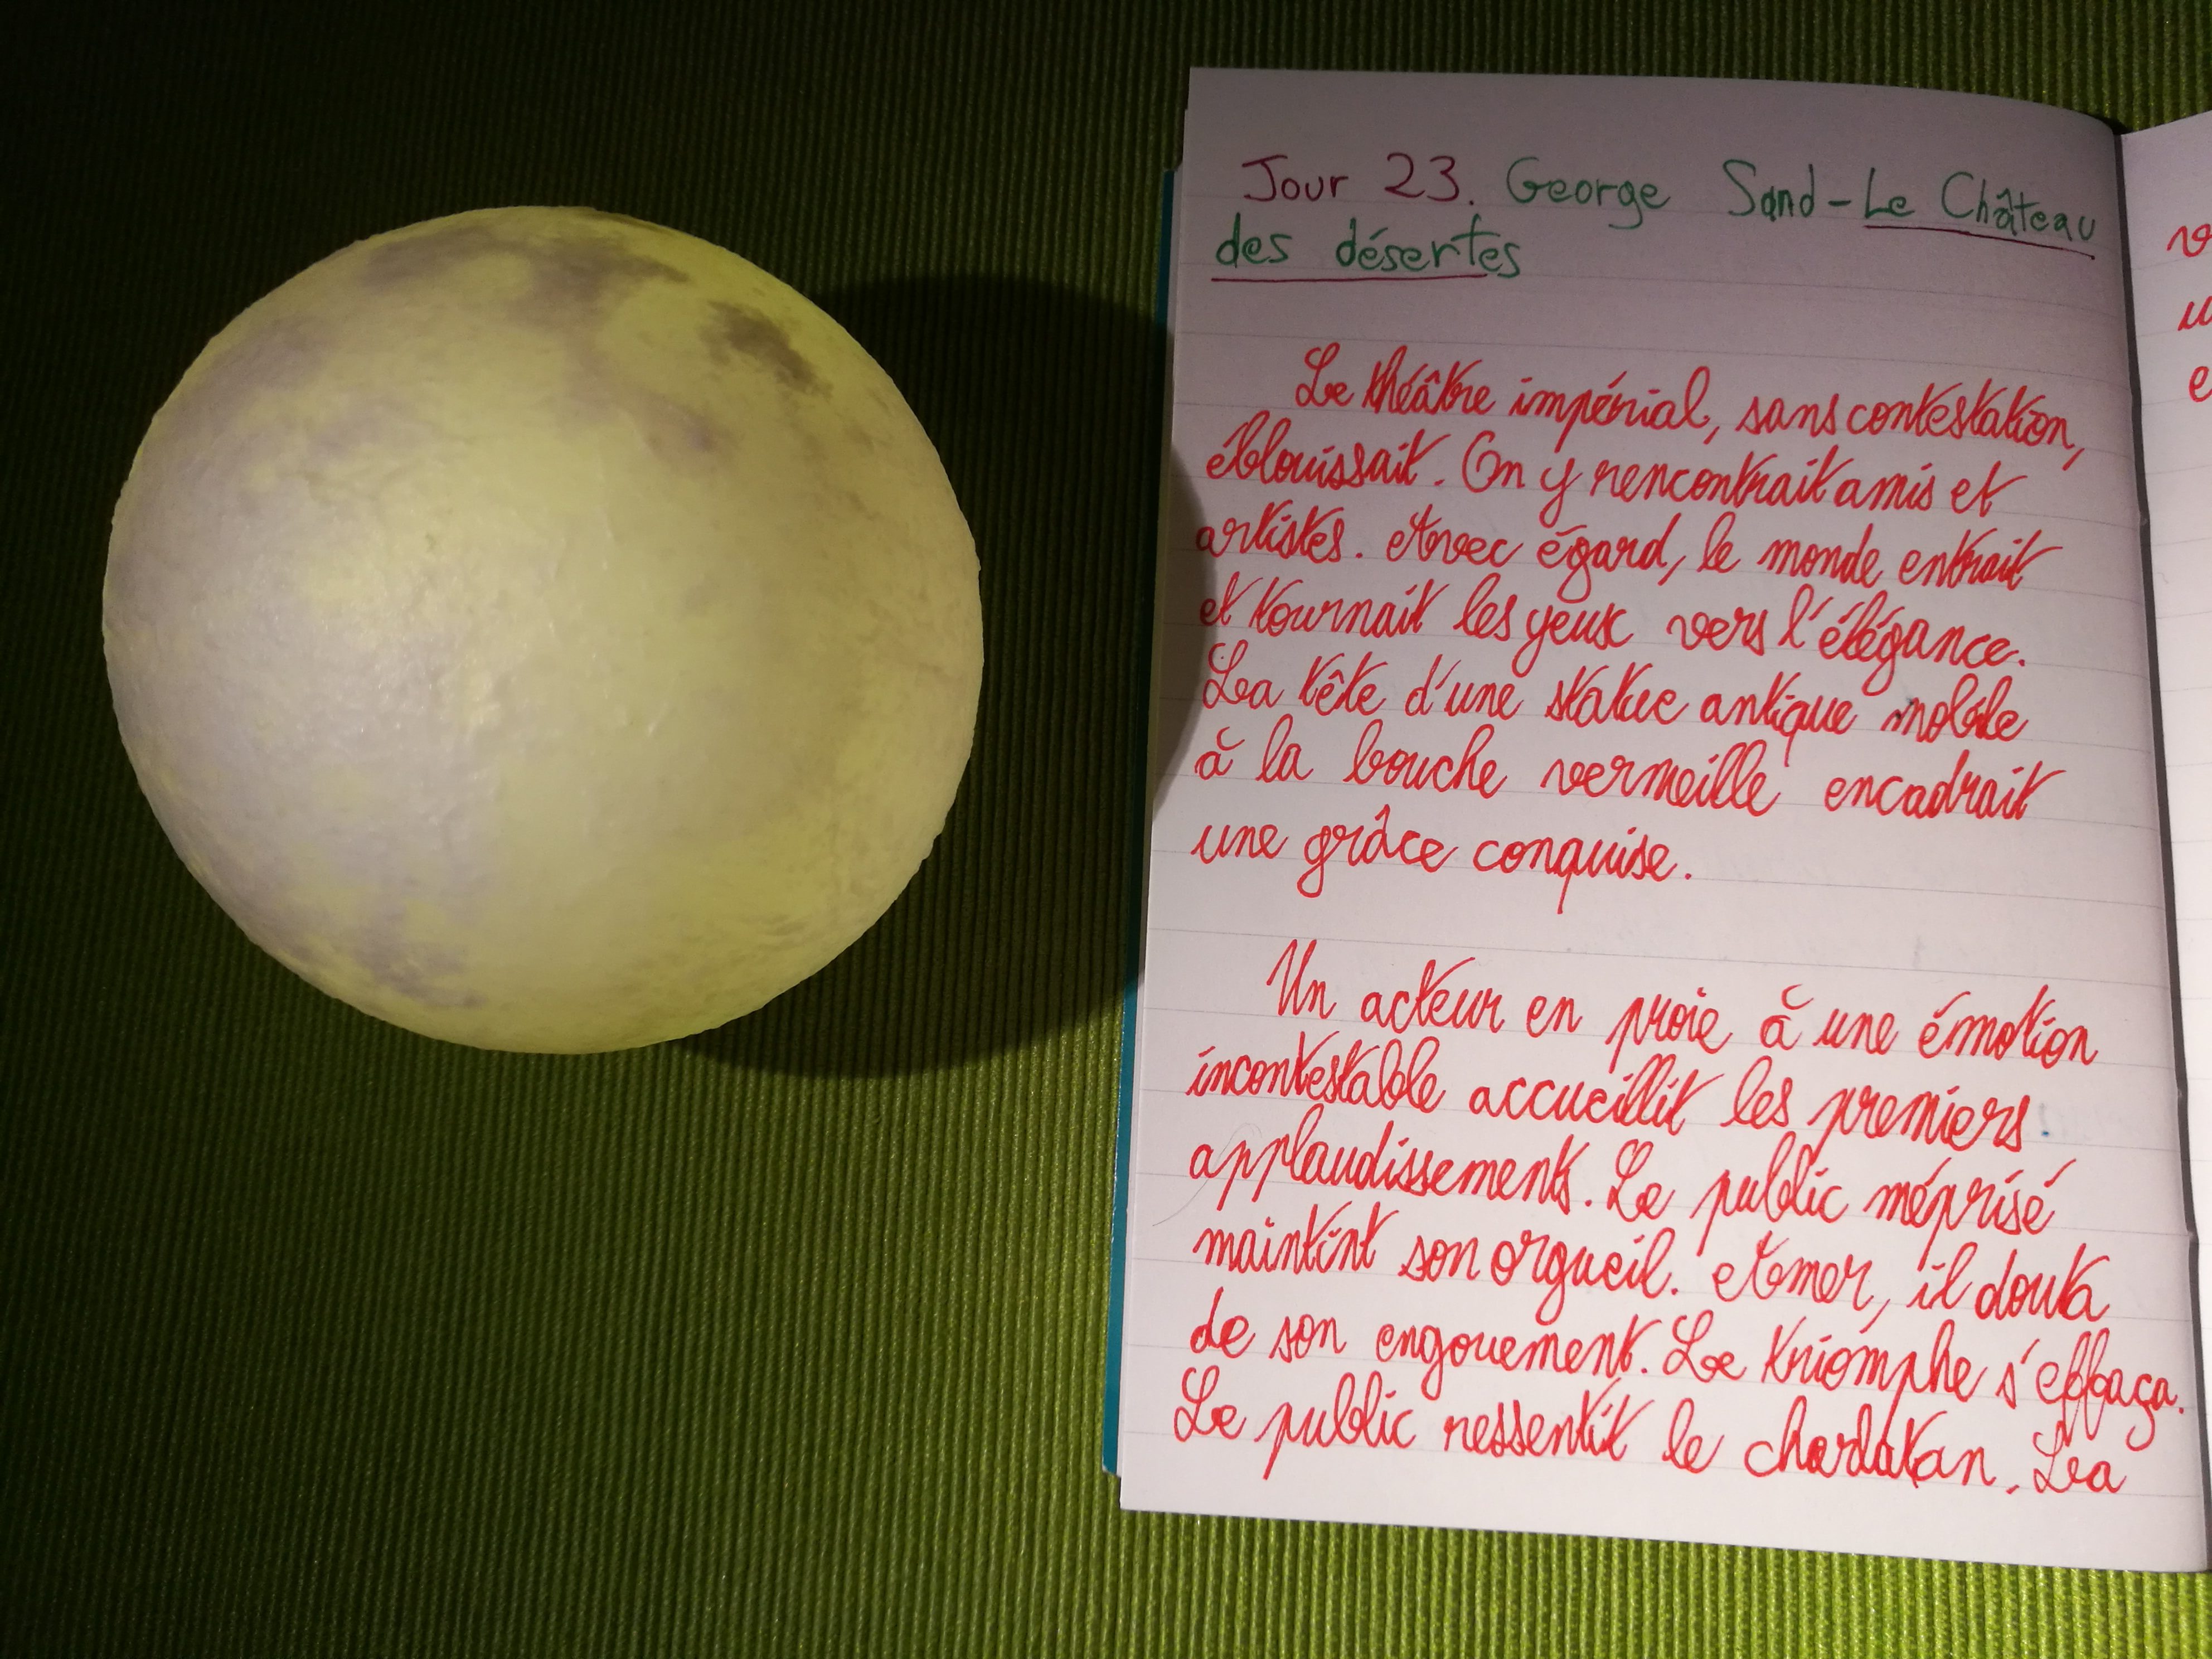 Jour 23. George Sand - Le Château
des désertes
Le théâtre impérial, sans contestation,
éblouissait. On y rencontrait amis et
artistes. Avec égard, le monde entrait
et tournait les yeux vers l'élégance.
La tête d'une statue antique mobile
à la bouche vermeille encadrait
une grâce conquise.
Un acteur en proie à une émotion
incontestable accueillit les premiers
applaudissements. Le public méprisé
maintint son orgueil. Amer, il douta
de son engouement. Le triomphe s'effaça.
Le public ressentit le charlatan. La